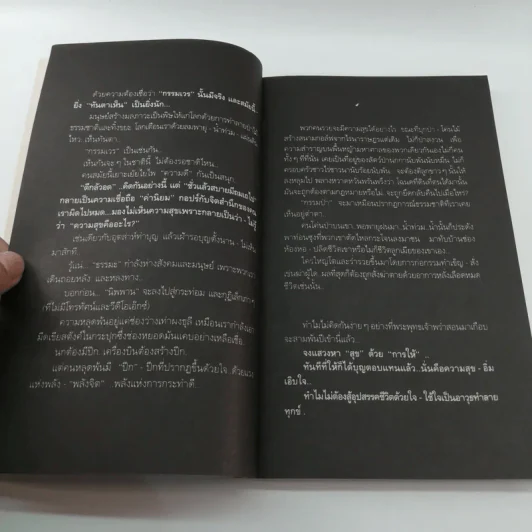 ด้วยความต้องเชื่อว่า "กรรมเวร" นั้นมีจริง และสมัยนี้...
ยิ่ง "ทันตาเห็น" เป็นยิ่งนัก...
มนุษย์สร้างมลภาวะเป็นพิษให้แก่โลกด้วยการทำลายป่าไม้
ธรรมชาติและทิ้งขยะ โลกเตือนเราด้วยลมพายุ - น้ำท่วม - แผ่นดิน
ไหว..เห็นทันตา..
"กรรมเวร" เป็นเช่นกัน..
เห็นกันจะๆ ในชาตินี้ ไม่ต้องรอชาติไหน...
คนสมัยนี้มาเย้ยใยไพ "ความดี" กันเป็นสนุก..
กลายเป็นความเชื่อถือ "ค่านิยม"
เรามีไปหมด...มองไม่เห็นความสุขเพราะกลายเป็นว่า - ไม่รู้
ว่า "ความสุขคืออะไร?"
เช่นเดียวกับอุตส่าห์ทำบุญ แล้วเฝ้ารอบุญตั้งนาน - ไม่เห็น
มาสักที..
รู้แน่.. "ธรรมะ" กำลังห่างสังคมและมนุษย์ เพราะพวกเรา
เดินถอยหลัง และหลงทาง..
บอกก่อน... "นิพพาน" จะลงไปสู่กระท่อม และกุฏิเล็กๆ
ที่ไม่มีโทรทัศน์และวีดีโอเอ๊กซ์)
ความหลุดพ้นอยู่แค่ช่องว่างเท่าผงธุลี เหมือนเรากำลังเอา
นกต้องมีปีก เครื่องบินต้องสร้างปีก..
แต่คนหลุดพ้นมี "ปีก" - ปีกที่ปรากฏขึ้นด้วยใจ
แห่งพลัง - "พลังจิต" พลังแห่งการกระทำดี..
พวกคนรวยจะมีความสุขได้อย่างไร
สร้างสนามกอล์ฟจากไร่นาของผู้อื่น
ความสำราญบนพื้นหญ้ามหาศาลของพวกเดียวกันเองไม่กี่คน
ทั้งๆ ที่ที่นั่น เคยเป็นถิ่นอยู่ของสัตว์ป่านกกานับพันนับหมื่น ไม่กี่
ครอบครัวชาวไร่ชาวนานับร้อยนับพัน
"กรรมป่า" จะมาเหมือนปรากฏการณ์ธรรมชาติที่เราเคย
เห็นอยู่ต่ำตา..
คนโค่นป่าบนเขา, พอพายุฝนมา, น้ำท่วม..น้ำนั้นก็ประดัง
พาท่อนซุงที่พวกเขาตัดโหดกระโจนลงมาชน
ห้องหอ - ปลิดชีวิตเขาหรือไม่ก็ชีวิตลูกเมียของเขาเอง..
ใครใหญ่โตและร่ำรวยขึ้นมาโดยการก่อกรรมทำเข็ญ - สั่ง
เช่นฆ่าผู้ใด ผลที่สุดก็ต้องถูกสั่งฆ่าตายด้วยอาการหลั่งเลือดหมด
ชีวิตเช่นนั้น..
ทำไมไม่คิดกันง่ายๆ อย่างที่พระพุทธเจ้าท่านสอนมาเกือบ
จะสามพันปีเข้านี่แล้ว..
จงแสวงหา "สุข" ด้วย "การให้" ..
ทันทีที่ให้ก็ได้บุญตอบแทนแล้ว..นั่นคือความสุข - อิ่ม
เอิบใจ..
ทำไมไม่ต้องสู้อุปสรรคชีวิตด้วยใจ - ใช้ใจเป็นอาวุธทำลาย
ทุกข์ .